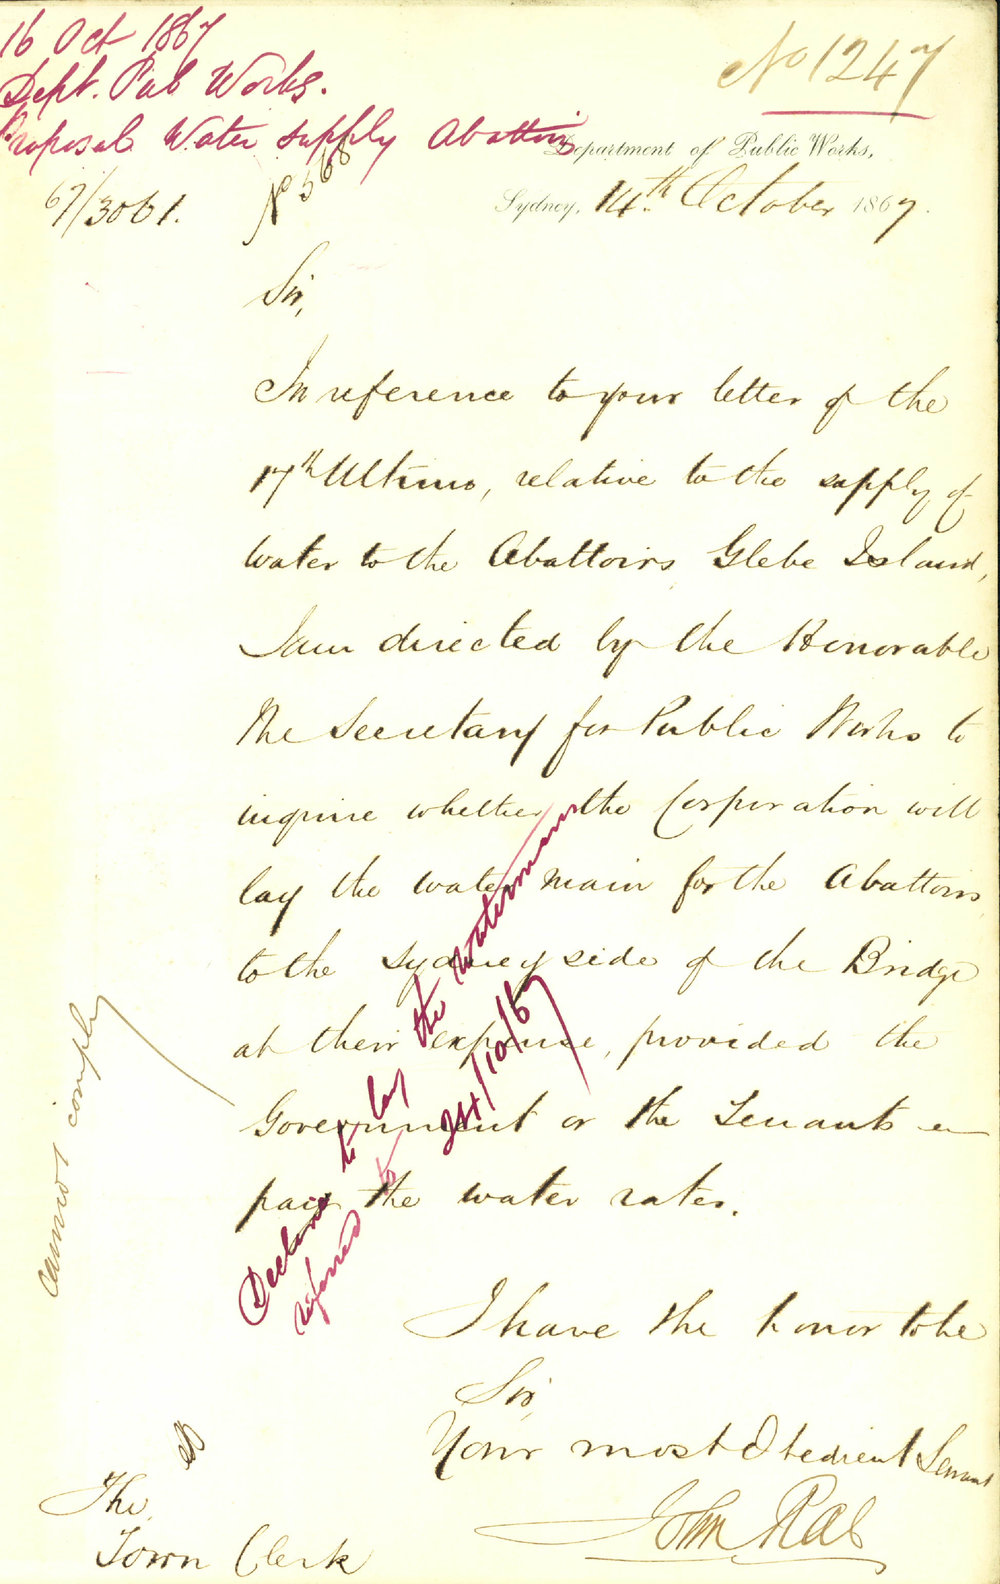 16 Oct 1867
Dept. Pub Works.
Proposal Water supply Abattoirs
No 1247
Department of Public Works,
67/3061.
No 568
Sydney, 14th October 1867.
Sir,
In reference to your letter of the
17th Ultimo, relative to the supply of
water to the Abattoirs Glebe Island,
I am directed by the Honorable
the Secretary for Public Works to
inquire whether the Corporation will
lay the water main for the Abattoirs
to the Sydney side of the Bridge
at their expense, provided the
Government or the Tenants
paid the water rates.
Decline to lay the watermain
referred to
24/10/67
cannot comply
I have the honor to be
Sir,
Your most Obedient Servant
John Rae
The
Town Clerk